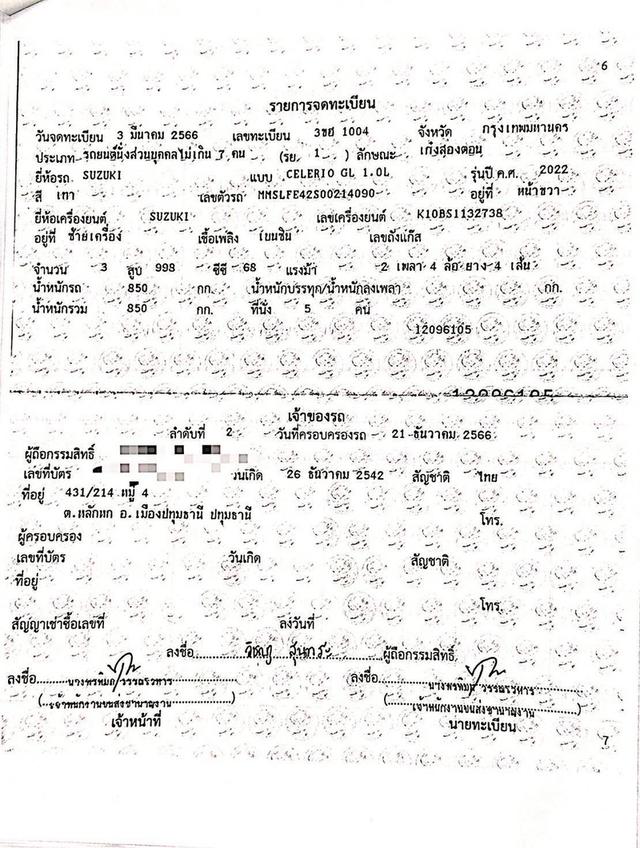 6
รายการจดทะเบียน
วันจดทะเบียน 3 มีนาคม 2566 เลขทะเบียน 3ขฮ 1004 จังหวัด กรุงเทพมหานคร
ประเภท รถยนต์นั่งส่วนบุคคลไม่เกิน 7 คน (รย. 1 ) ลักษณะ เก๋งสองตอน
ยี่ห้อรถ SUZUKI แบบ CELERIO GL 1.0L รุ่นปี ค.ศ. 2022
สี เทา เลขตัวรถ MMSLFE42S00214090 อยู่ที่ หน้าขวา
ยี่ห้อเครื่องยนต์ SUZUKI เลขเครื่องยนต์ K10BS1132738
อยู่ที่ ซ้ายเครื่อง เชื้อเพลิง เบนซิน เลขถังแก๊ส
จำนวน 3 สูบ 998 ซีซี 68 แรงม้า 2 เพลา 4 ล้อ ยาง 4 เส้น
น้ำหนักรถ 850 กก. น้ำหนักบรรทุก/น้ำหนักลงเพลา กก.
น้ำหนักรวม 850 กก. ที่นั่ง 5 คน
12096105
12096105
เจ้าของรถ
ลำดับที่ 2 วันที่ครอบครองรถ 21 ธันวาคม 2566
ผู้ถือกรรมสิทธิ์
เลขที่บัตร วันเกิด 26 ธันวาคม 2542 สัญชาติ ไทย
ที่อยู่ 431/214 หมู่ 4
ต.หลักหก อ.เมืองปทุมธานี ปทุมธานี โทร.
ผู้ครอบครอง
เลขที่บัตร วันเกิด สัญชาติ
ที่อยู่
โทร.
สัญญาเช่าซื้อเลขที่ ลงวันที่
ลงชื่อ ผู้ถือกรรมสิทธิ์
ลงชื่อ ลงชื่อ
(เจ้าพนักงานขนส่งชำนาญงาน) (เจ้าพนักงานขนส่งชำนาญงาน)
เจ้าหน้าที่ นายทะเบียน
7